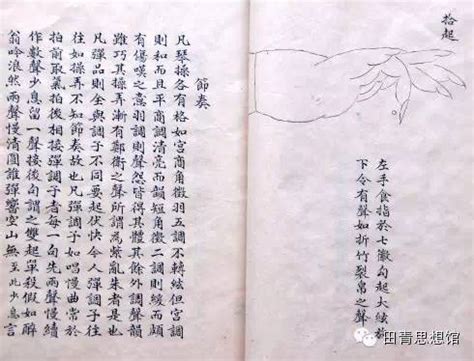 拾起
左手食指於七徽句起大絃於
下令有聲如折竹裂帛之聲
節奏
凡琴操各有格如宮商角徵羽五調不轉絃但宮調
則和而且平商調清亮而韻短角徵二調則緩而頗
有傷嘆之意羽調則聲怨皆得其體其餘外調韻
雖巧其操弄漸有鄭衛之聲所謂為紫亂朱者是也
凡彈品則全與調子不同要起伏快令人彈調子往
往如操弄不知節奏故也凡彈調子如唱慢曲當於
拍前取氣拍後相接彈調子者每一句先兩聲慢續
作數聲少息留一聲接後句謂之雙起單殺假如醉
翁吟浪然兩聲慢清圓誰彈響空山無至此少息言
田青思想馆